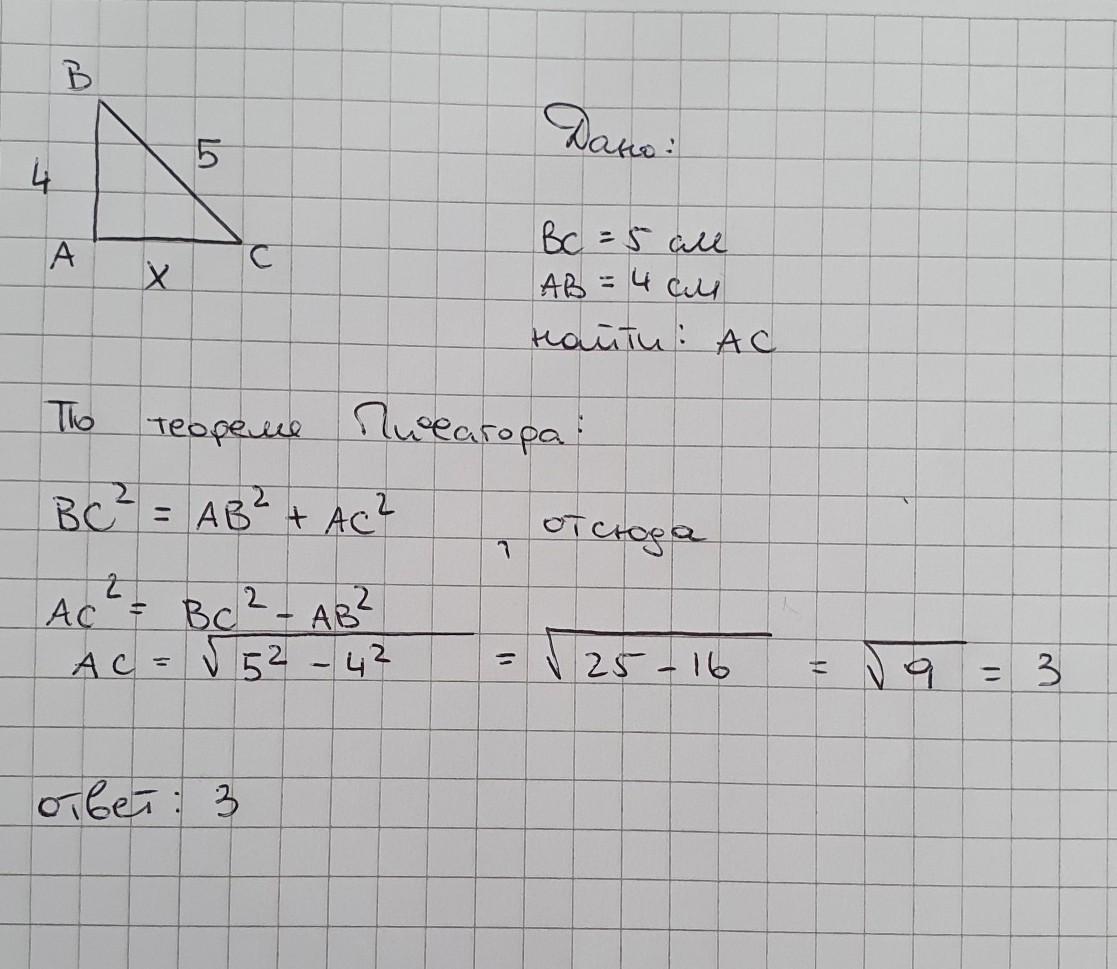 B
4
5
A
X
C
Дано:
BC = 5 см
AB = 4 см
найти: AC
По теореме Пифагора:
BC² = AB² + AC² , отсюда
AC² = BC² - AB²
AC = √5² - 4² = √25 - 16 = √9 = 3
ответ: 3